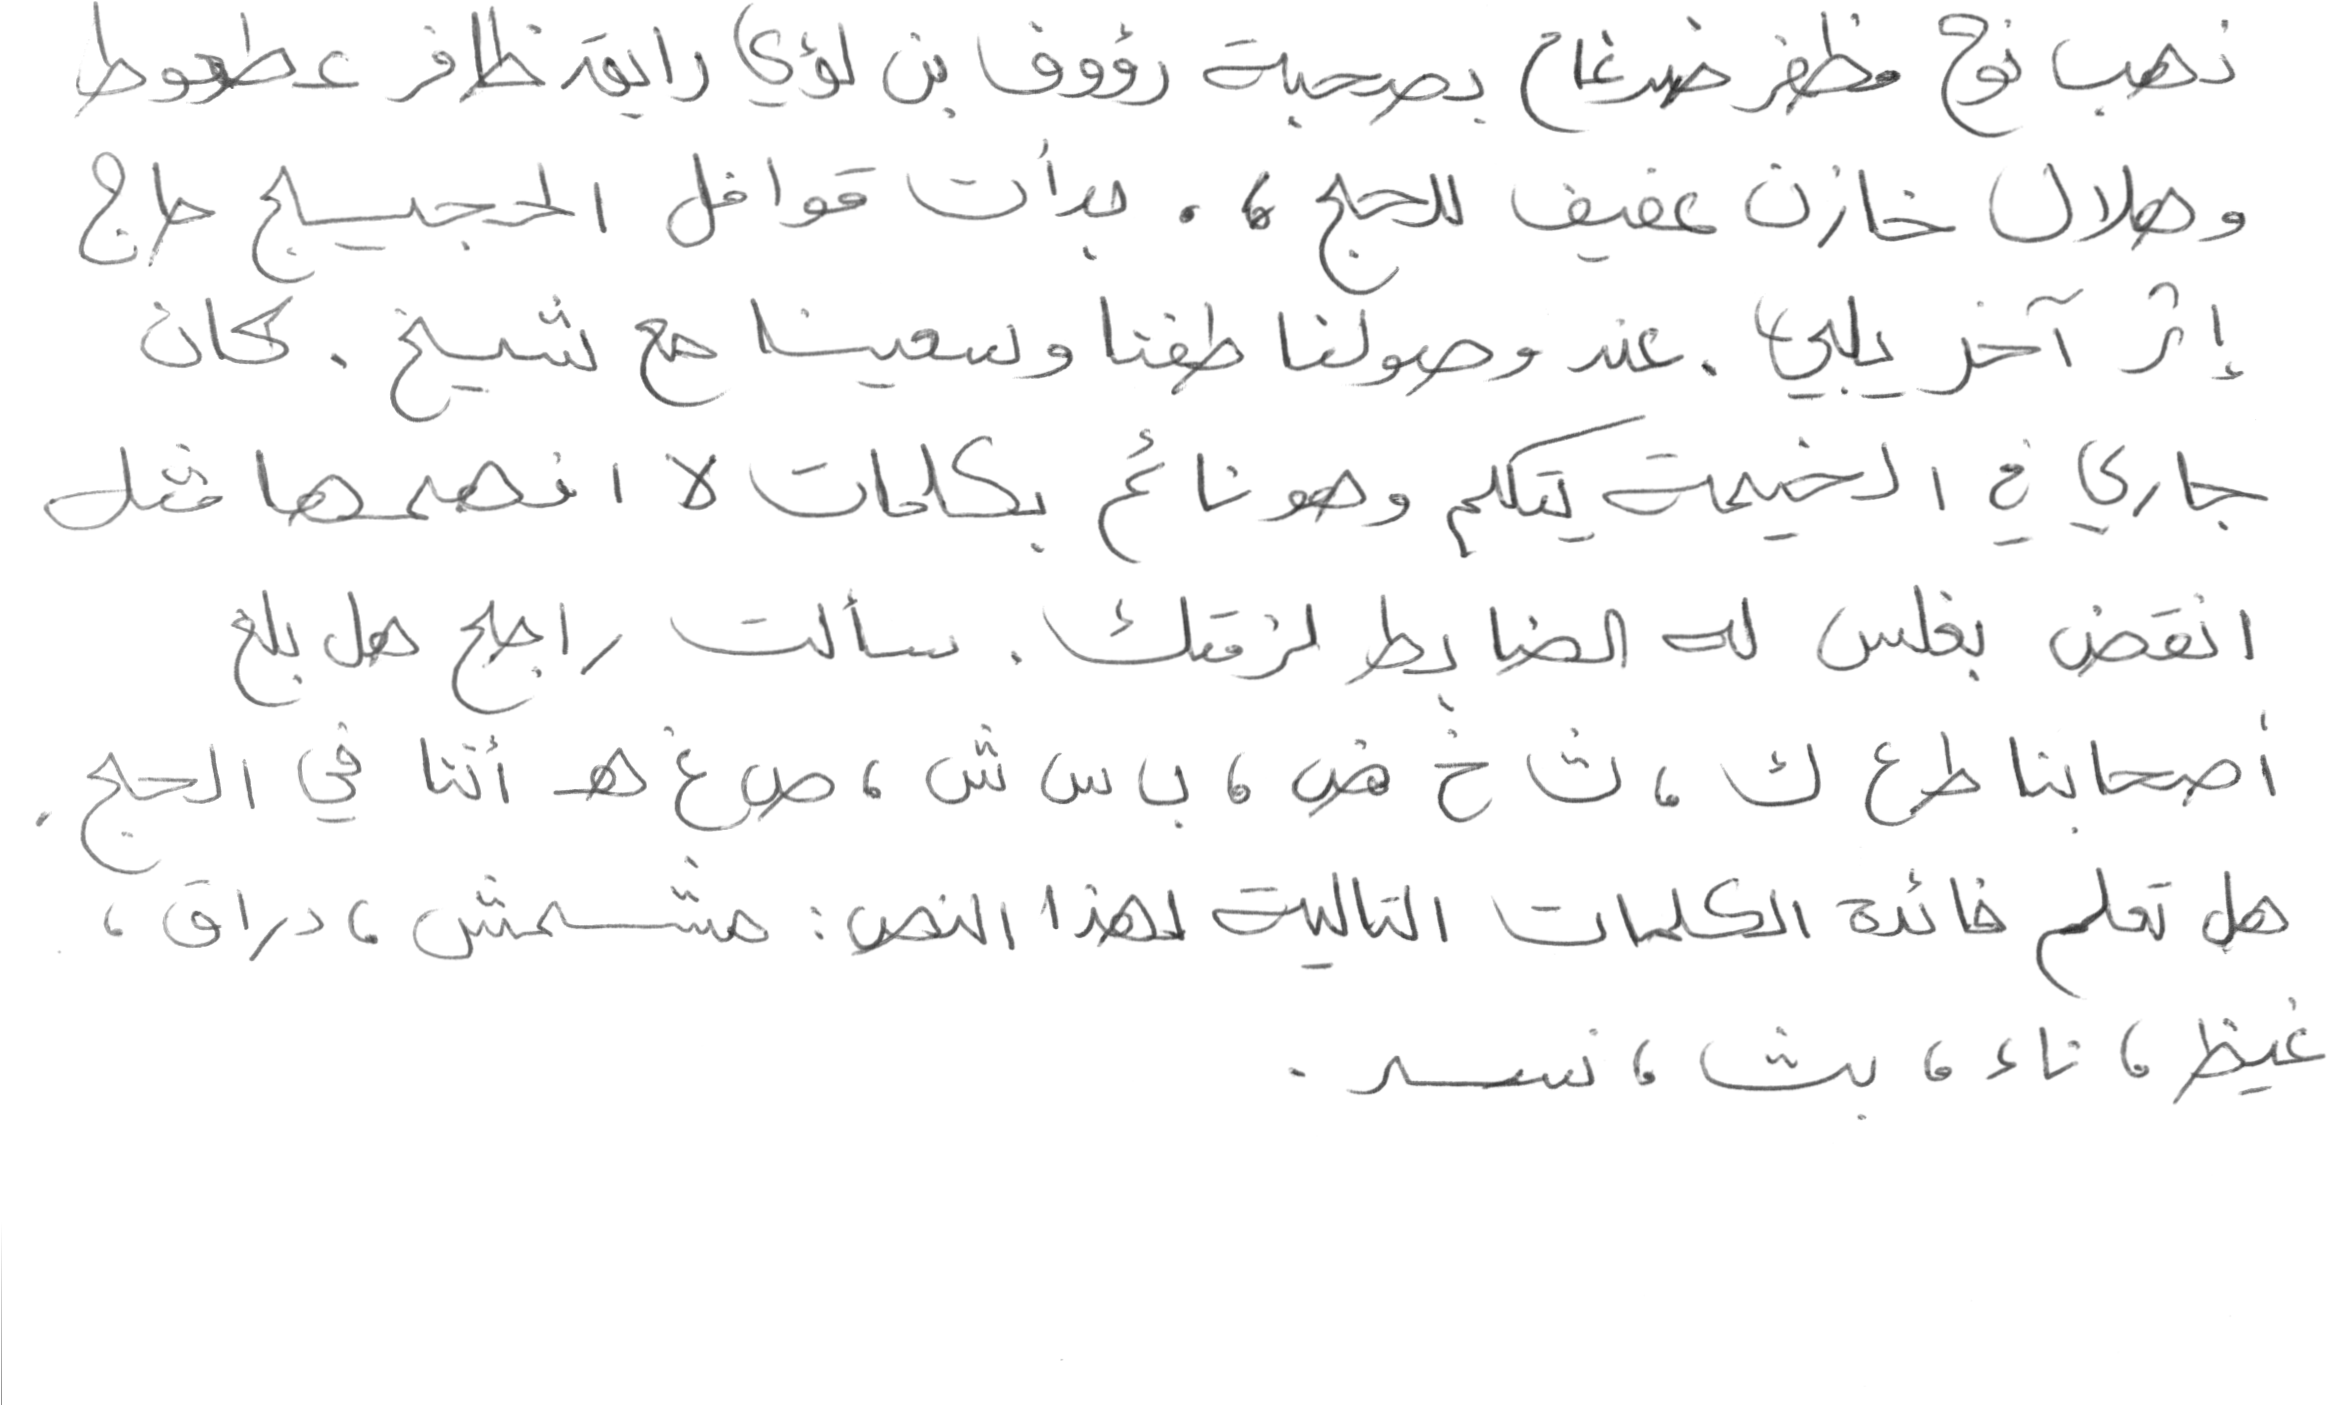 ذهب نوح مظفر ضرغام بصحبة رؤوف بن لؤي رايق ظافر عطعوط
وهلال خازن عفيف للحج ، . بدأت قوافل الحجيج حاج
إثر آخر يلبي . عند وصولنا طفنا وسعينا مع شيخ . كان
جاري في الخيمة يتكلم وهو نائم بكلمات لا افهمها مثل
انقض بغلس له الضابط لزقتك . سألت راجح هل بلغ
أصحابنا ط ع ك ، ث خ ض ، ب س ش ، ص غ هـ أننا في الحج .
هل تعلم فائدة الكلمات التالية لهذا النص : مشمش ، دراق ،
غيظ ، ناء ، بث ، نسر .